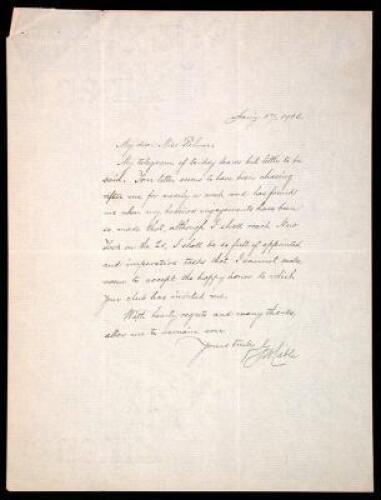 My dear Miss
My telegram of to-day leaves but little to be
said. Your letter seems to have been chasing
after me for nearly a week and has found
me when my business engagements have been
so made that, although I shall reach New
York on the 20, I shall be so full of appointed
and imperative tasks that I cannot make
room to accept the happy honor to which
your club has invited me.
With hearty regrets and many thanks,
allow me to remain ever
Yours truly,
G W Cable